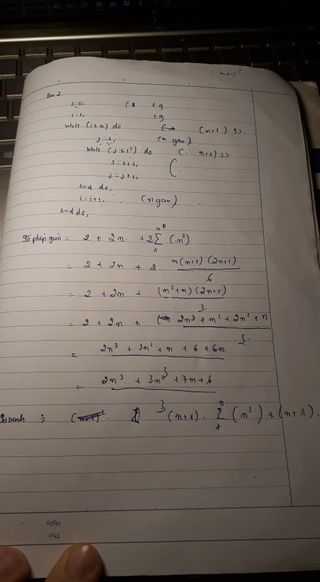 Bài 2
s:=0; (2 t.g.
i:=1; t.g.
while (i≤n) do (n+1) ss
j:=1; (n gán)
while (j≤i²) do ( n+1) ss
s:=s+1;
j:=j+1;
end do;
i:=i+1; (n gán)
end do;
Số phép gán = 2 + 2n + 2 Σ (n²)
= 2 + 2n + 2. n(n+1)(2n+1) / 6
= 2 + 2n + (n²+n)(2n+1) / 3
= 2 + 2n + 2n³ + n² + 2n² + n / 3
= 2n³ + 3n² + n + 6 + 6n / 3
= 2n³ + 3n² + 7n + 6 / 3
(n+1). Σ (n²) + (n+1).
Thứ
Ngày